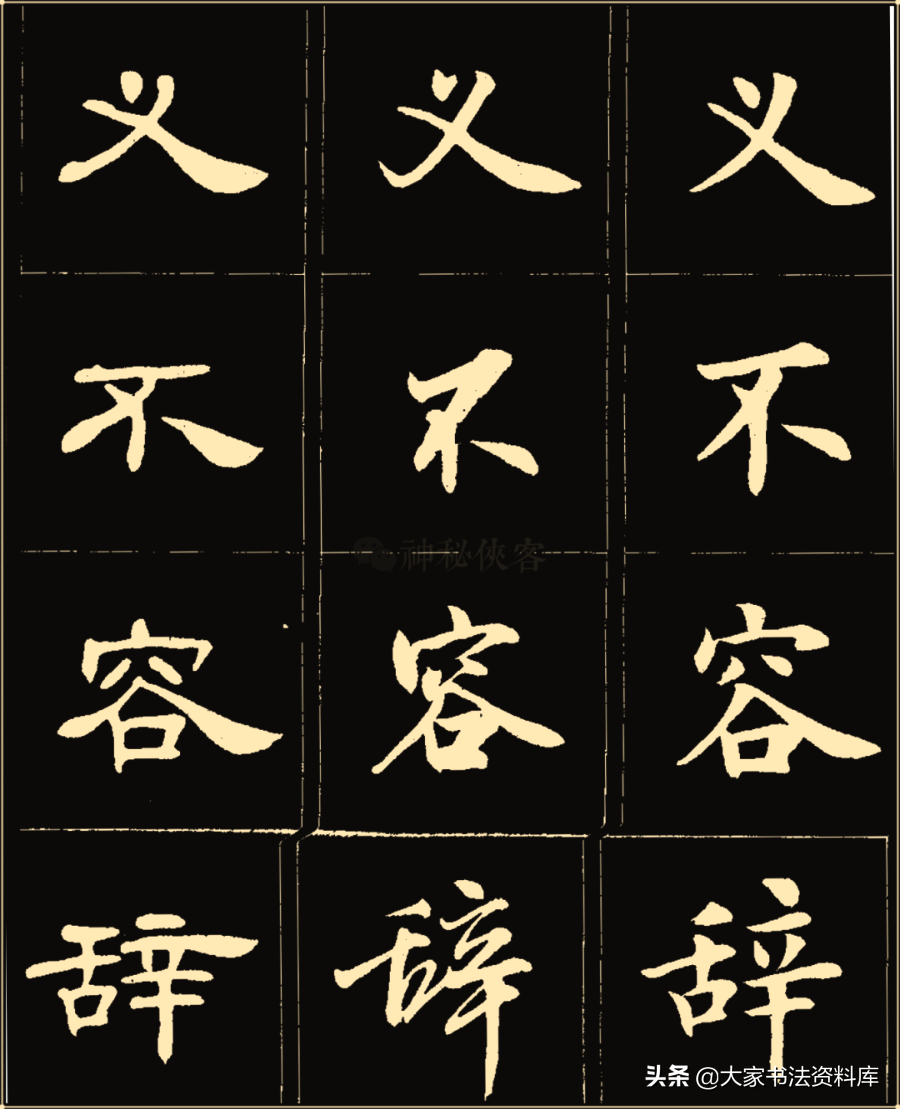 义 义 义
不 不 不
容 容 容
辞 辞 辞
神秘侠客
头条 @大家书法资料库